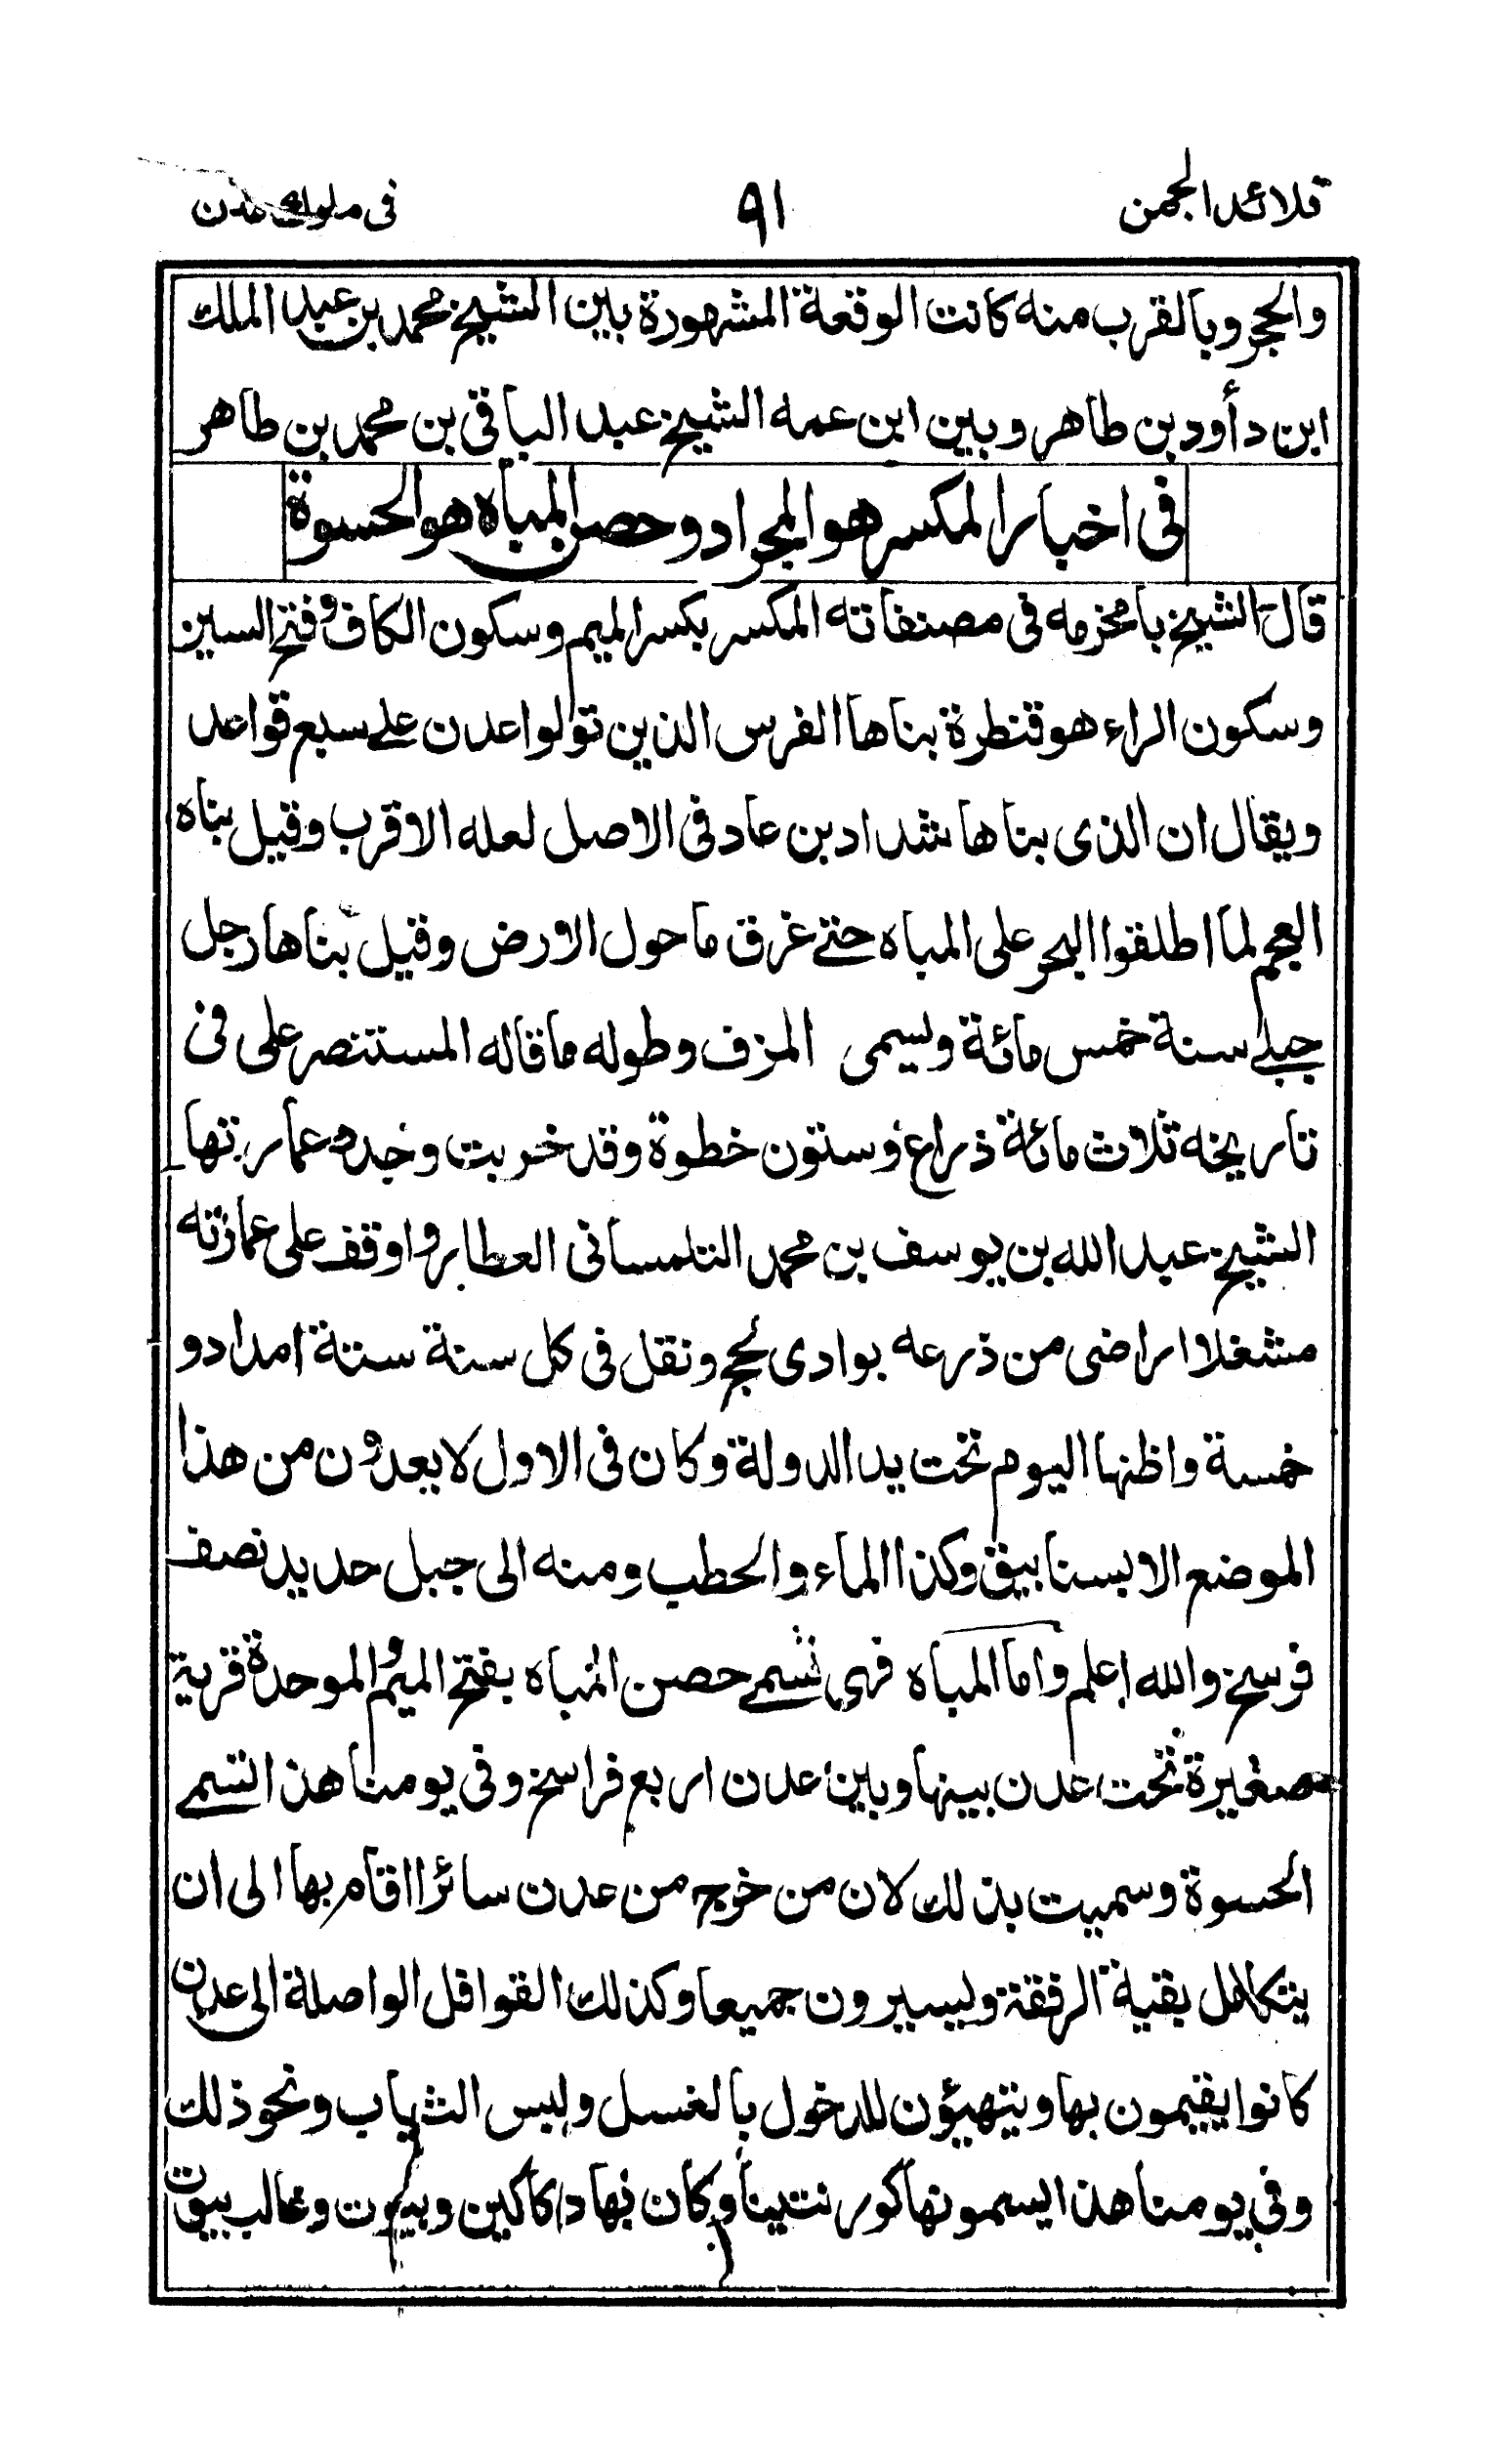 قلائد الجمن ٩١ في ملوك عدن
والحجر وبالقرب منه كانت الوقعة المشهورة بين الشيخ محمد بن عبد الملك
ابن دأود بن طاهر وبين ابن عمه الشيخ عبد الباقي بن محمد بن طاهر
في اخبار المكسر هو المجراد وحصن المباه هو الحسوة
قال الشيخ بامخرمه في مصنفاته المكسر بكسر الميم وسكون الكاف وفتح السين
وسكون الراء هو قنطرة بناها الفرس الذين تولوا عدن على سبع قواعد
ويقال ان الذي بناها شداد بن عاد في الاصل لعله الاقرب وقيل بناه
العجم لما اطلقوا البحر على المباه حتى غرق ما حول الارض وقيل بناها رجل
جبلي سنة خمس مائة ويسمى المزف وطوله ما قاله المستنصر على في
تاريخه ثلاث مائة ذراع وستون خطوة وقد خربت وجدد عمارتها
الشيخ عبد الله بن يوسف بن محمد التلمساني العطار واوقف على عمارته
مشغلا اراضى من ذرعه بوادى لحج ونقل في كل سنة ستة امداد و
خمسة واظنها اليوم تحت يد الدولة وكان في الاول لا يعدون من هذا
الموضع الا بسنابيق وكذا الماء والحطب ومنه الى جبل حديد نصف
فرسخ والله اعلم واما المباه فهي تسمى حصن المباه بفتح الميم والموحدة قرية
صغيرة تحت عدن بينها وبين عدن اربع فراسخ وفي يومنا هذا تسمى
الحسوة وسميت بذلك لان من خرج من عدن سائرا اقام بها الى ان
يتكامل بقية الرفقة ويسيرون جميعا وكذلك القوافل الواصلة الى عدن
كانوا يقيمون بها ويتهيؤن للدخول بالغسل ولبس الثياب ونحو ذلك
وفي يومنا هذا يسمونها كورنتينا وكان بها دكاكين وبيوت وغالب بيوت